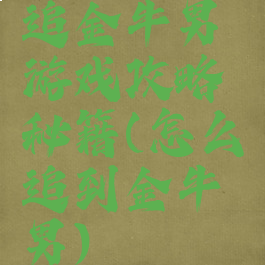 追金牛男
游戏攻略
秘籍(怎么
追到金牛
男)